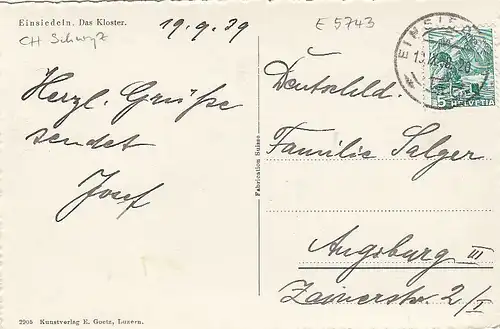 Einsiedeln. Das Kloster.
19.9.39
E 5743
CH Schwyz
HELVETIA
5
Herzl. Grüße
sendet
Josef
Fabrication Suisse
Deutschld.
Familie Salger
Augsburg III
Zainerstr. 2/I
2905 Kunstverlag E. Goetz, Luzern.